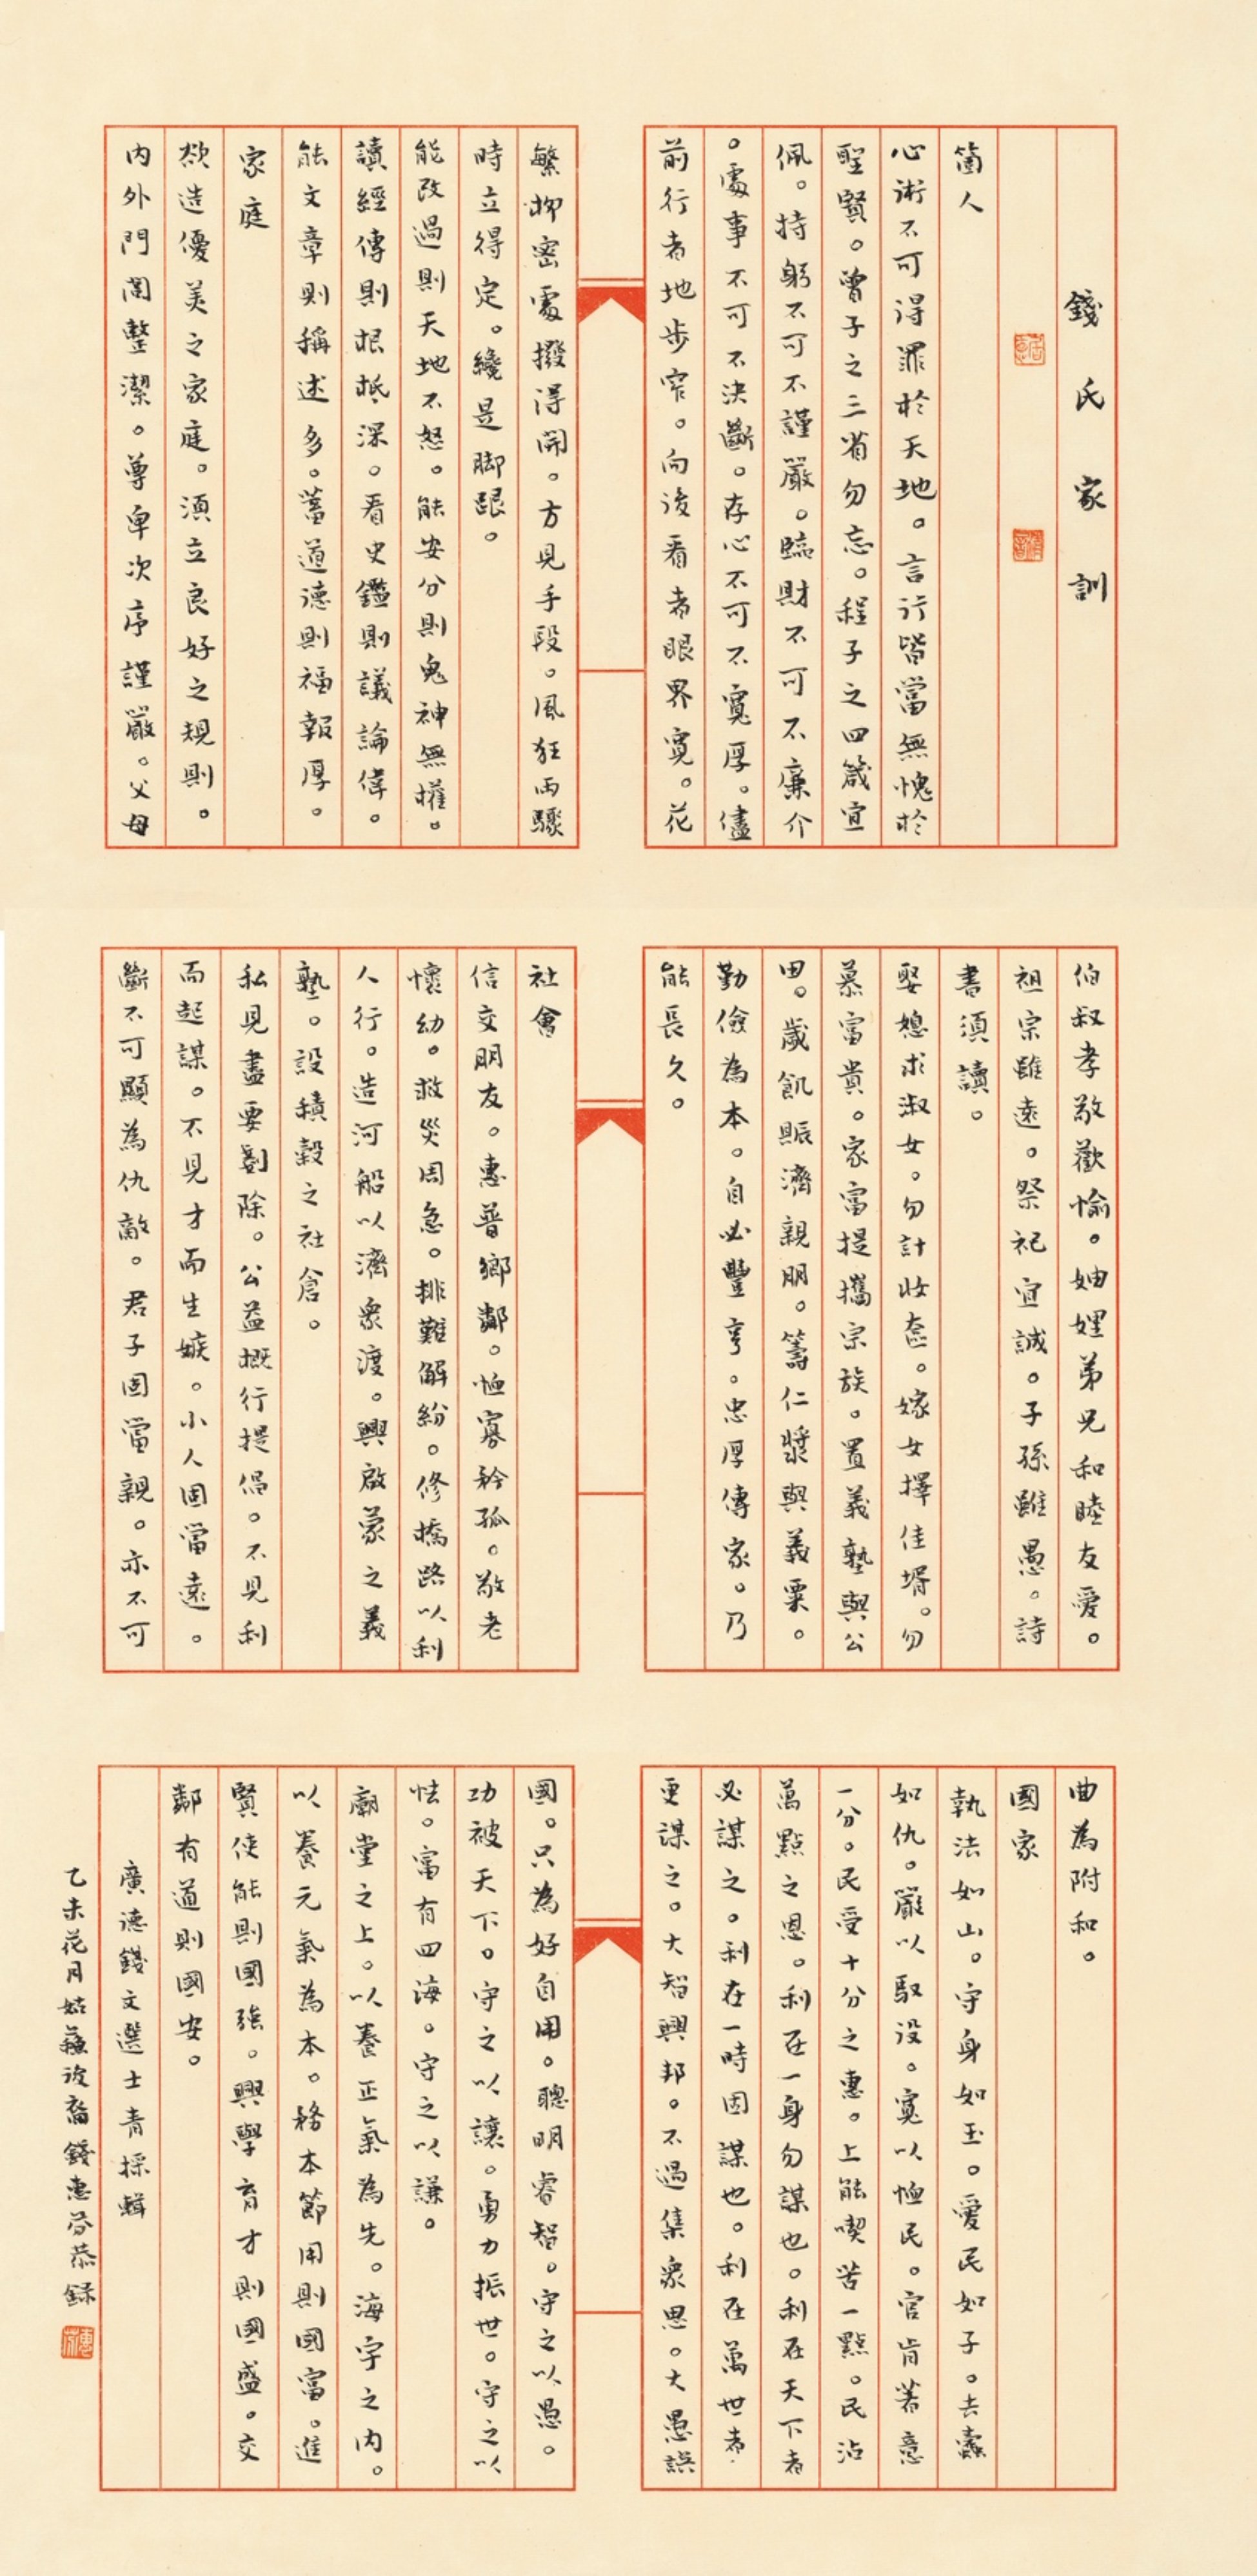 錢氏家訓
箇人
心術不可得罪於天地。言行皆當無愧於
聖賢。曾子之三省勿忘。程子之四箴宜
佩。持躬不可不謹嚴。臨財不可不廉介
。處事不可不決斷。存心不可不寬厚。儘
前行者地步窄。向後看者眼界寬。花
繁柳密處撥得開。方見手段。風狂雨驟
時立得定。纔是脚跟。
能改過則天地不怒。能安分則鬼神無權。
讀經傳則根柢深。看史鑑則議論偉。
能文章則稱述多。蓄道德則福報厚。
家庭
欲造優美之家庭。須立良好之規則。
內外門閭整潔。尊卑次序謹嚴。父母
伯叔孝敬歡愉。妯娌弟兄和睦友愛。
祖宗雖遠。祭祀宜誠。子孫雖愚。詩
書須讀。
娶媳求淑女。勿計妝奩。嫁女擇佳壻。勿
慕富貴。家富提攜宗族。置義塾與公
田。歲飢賑濟親朋。籌仁漿與義粟。
勤儉為本。自必豐亨。忠厚傳家。乃
能長久。
社會
信交朋友。惠普鄉鄰。恤寡矜孤。敬老
懷幼。救災周急。排難解紛。修橋路以利
人行。造河船以濟眾渡。興啟蒙之義
塾。設積穀之社倉。
私見盡要剷除。公益概行提倡。不見利
而起謀。不見才而生嫉。小人固當遠。
斷不可顯為仇敵。君子固當親。亦不可
曲為附和。
國家
執法如山。守身如玉。愛民如子。去蠹
如仇。嚴以馭役。寬以恤民。官肯著意
一分。民受十分之惠。上能喫苦一點。民沾
萬點之恩。利在一身勿謀也。利在天下者
必謀之。利在一時固謀也。利在萬世者
更謀之。大智興邦。不過集眾思。大愚誤
國。只為好自用。聰明睿智。守之以愚。
功被天下。守之以讓。勇力振世。守之以
怯。富有四海。守之以謙。
廟堂之上。以養正氣為先。海宇之內。
以養元氣為本。務本節用則國富。進
賢使能則國強。興學育才則國盛。交
鄰有道則國安。
廣德錢文選士青採輯
乙未花月姑蘇後裔錢惠芬恭錄